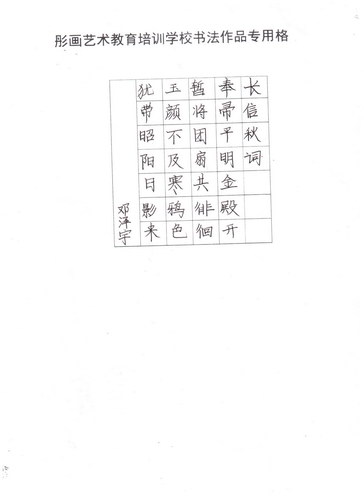 彤画艺术教育培训学校书法作品专用格
长信秋词
奉帚平明金殿开
暂将团扇共徘徊
玉颜不及寒鸦色
犹带昭阳日影来